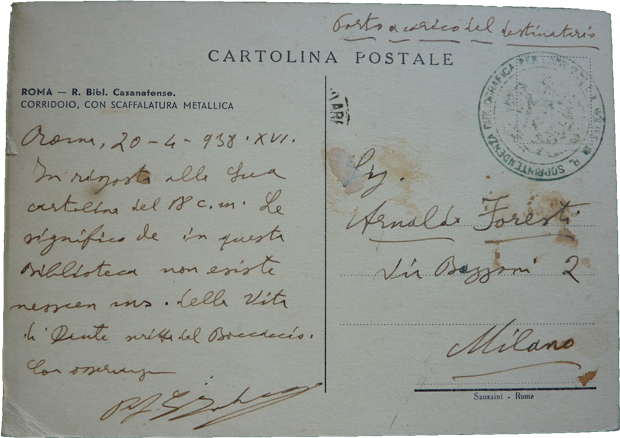 Porto a carico del destinatario
CARTOLINA POSTALE
ROMA — R. Bibl. Casanatense.
CORRIDOIO, CON SCAFFALATURA METALLICA
Roma, 20-4-938.XVI.
In risposta alla Sua
cartolina del 18 c.m. Le
significo che in questa
Biblioteca non esiste
nessun ms. della Vita
di Dante scritta dal Boccaccio.
Con osservanza
R. SOPRINTENDENZA BIBLIOGRAFICA PER
Sig.
Arnaldo Foresti
Via Bazzoni 2
Milano
Sansaini - Roma